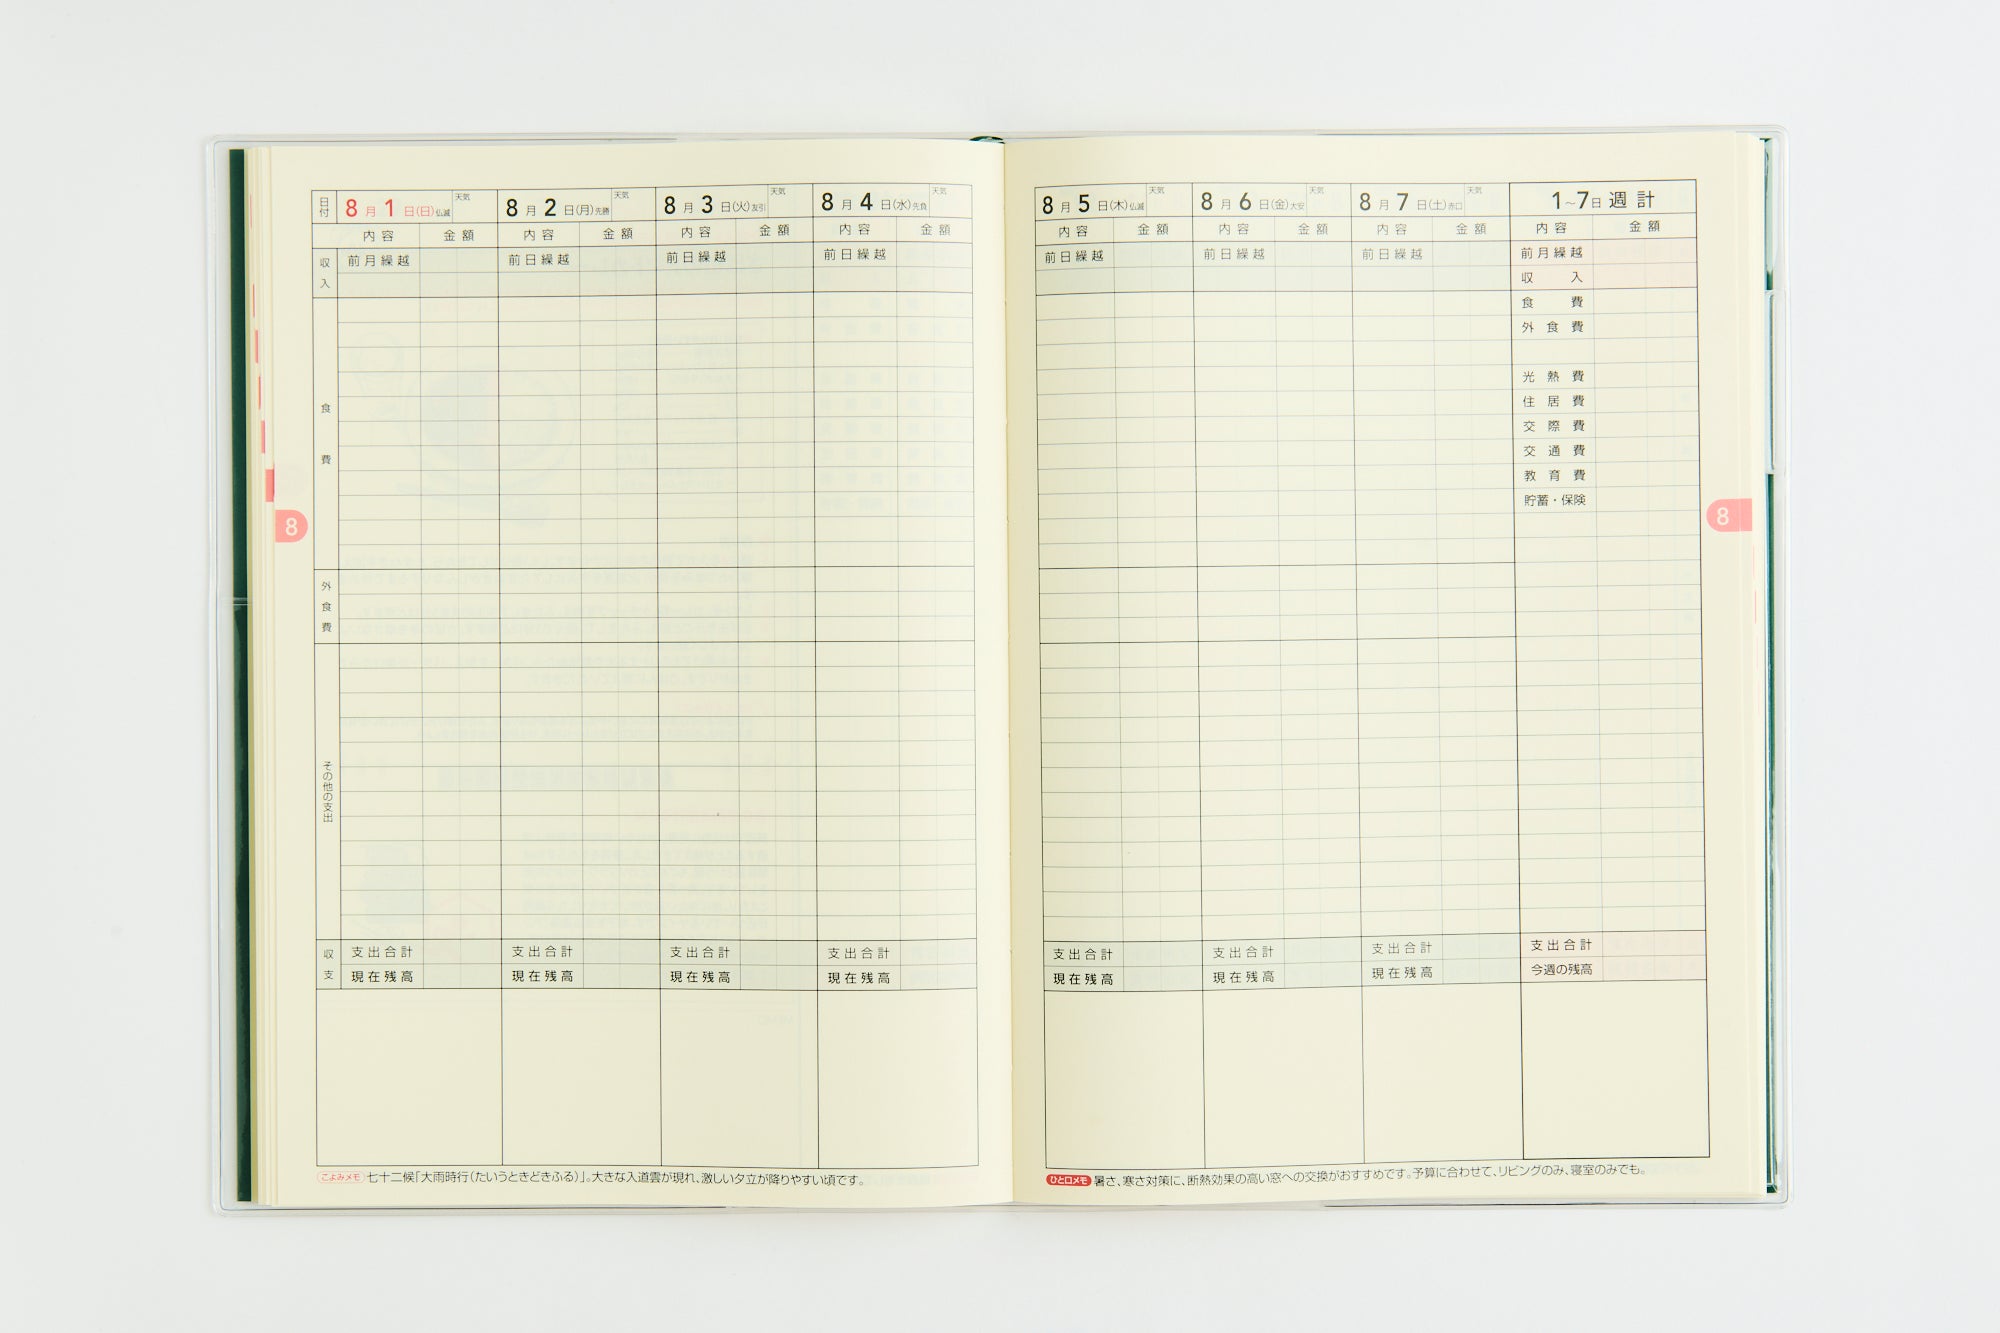 日付 8月1日(日)仏滅 天気 8月2日(月)先勝 天気 8月3日(火)友引 天気 8月4日(水)先負 天気
内容 金額 内容 金額 内容 金額 内容 金額
収入 前月繰越 前日繰越 前日繰越 前日繰越
食費
8
外食費
その他の支出
収支 支出合計 支出合計 支出合計 支出合計
現在残高 現在残高 現在残高 現在残高
こよみメモ 七十二候「大雨時行(たいうときどきふる)」。大きな入道雲が現れ、激しい夕立が降りやすい頃です。
8月5日(木)仏滅 天気 8月6日(金)大安 天気 8月7日(土)赤口 天気 1~7日 週計
内容 金額 内容 金額 内容 金額 内容 金額
前日繰越 前日繰越 前日繰越 前月繰越
収入
食費
外食費
光熱費
住居費
交際費
交通費
教育費
貯蓄・保険
8
支出合計 支出合計 支出合計 支出合計
現在残高 現在残高 現在残高 今週の残高
ひと口メモ 暑さ、寒さ対策に、断熱効果の高い窓への交換がおすすめです。予算に合わせて、リビングのみ、寝室のみでも。